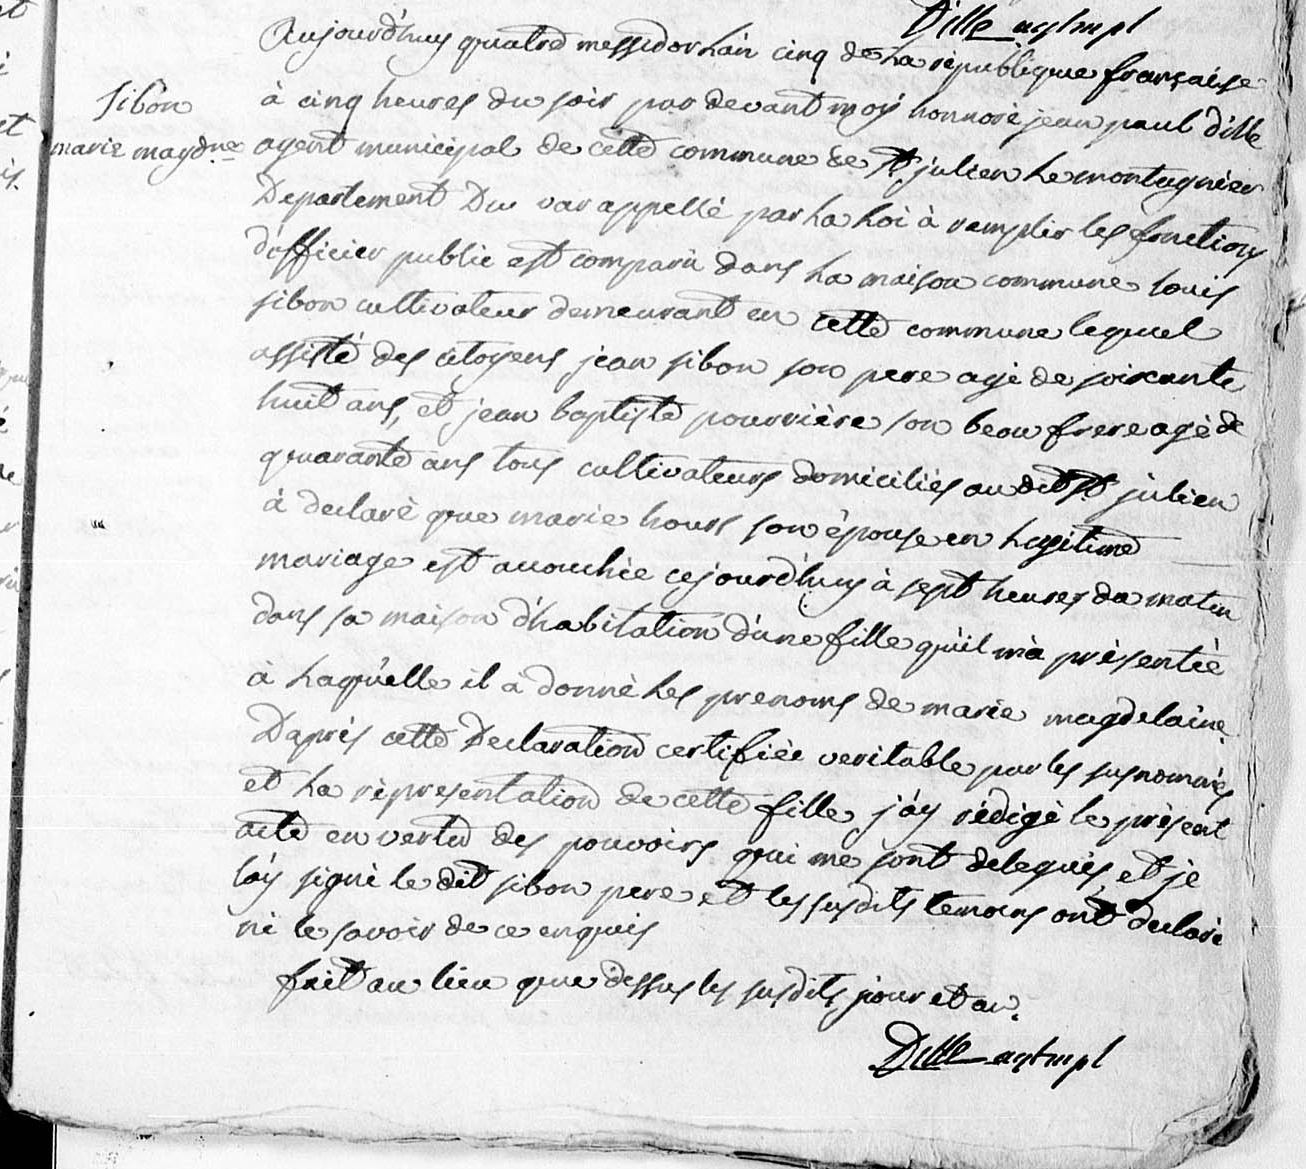 Dille agt mpl
Aujourd'huy quatre messidor l'an cinq de la république française
Sibon
marie magdne
à cinq heures du soir par devant moy honnoré jean paul dille
agent municipal de cette commune de St julien le montagnier
Departement Du var appellé par la loi à remplir les fonctions
d'officier public est comparu dans la maison commune louis
sibon cultivateur demeurant en cette commune lequel
assisté des citoyens jean sibon son pere agé de soixante
huit ans, et jean baptiste pourrière son beau frere agé de
quarante ans tous cultivateurs domiciliés au dit St julien
à declaré que marie hours son épouse en legitime
mariage est accouchée cejourd'huy à sept heures du matin
dans sa maison d'habitation d'une fille qu'il m'a présentée
a laquelle il a donné les prenoms de marie magdelaine
D'après cette Declaration certifiée veritable par les susnommés
et la représentation de cette fille j'ay rédigé le présent
acte en vertu des pouvoirs qui me sont delegués et je
l'ay signé le dit sibon pere et les susdits temoins ont declaré
ne le savoir de ce enquis
fait au lieu que dessus les susdits jour et an.
Dille agt mpl